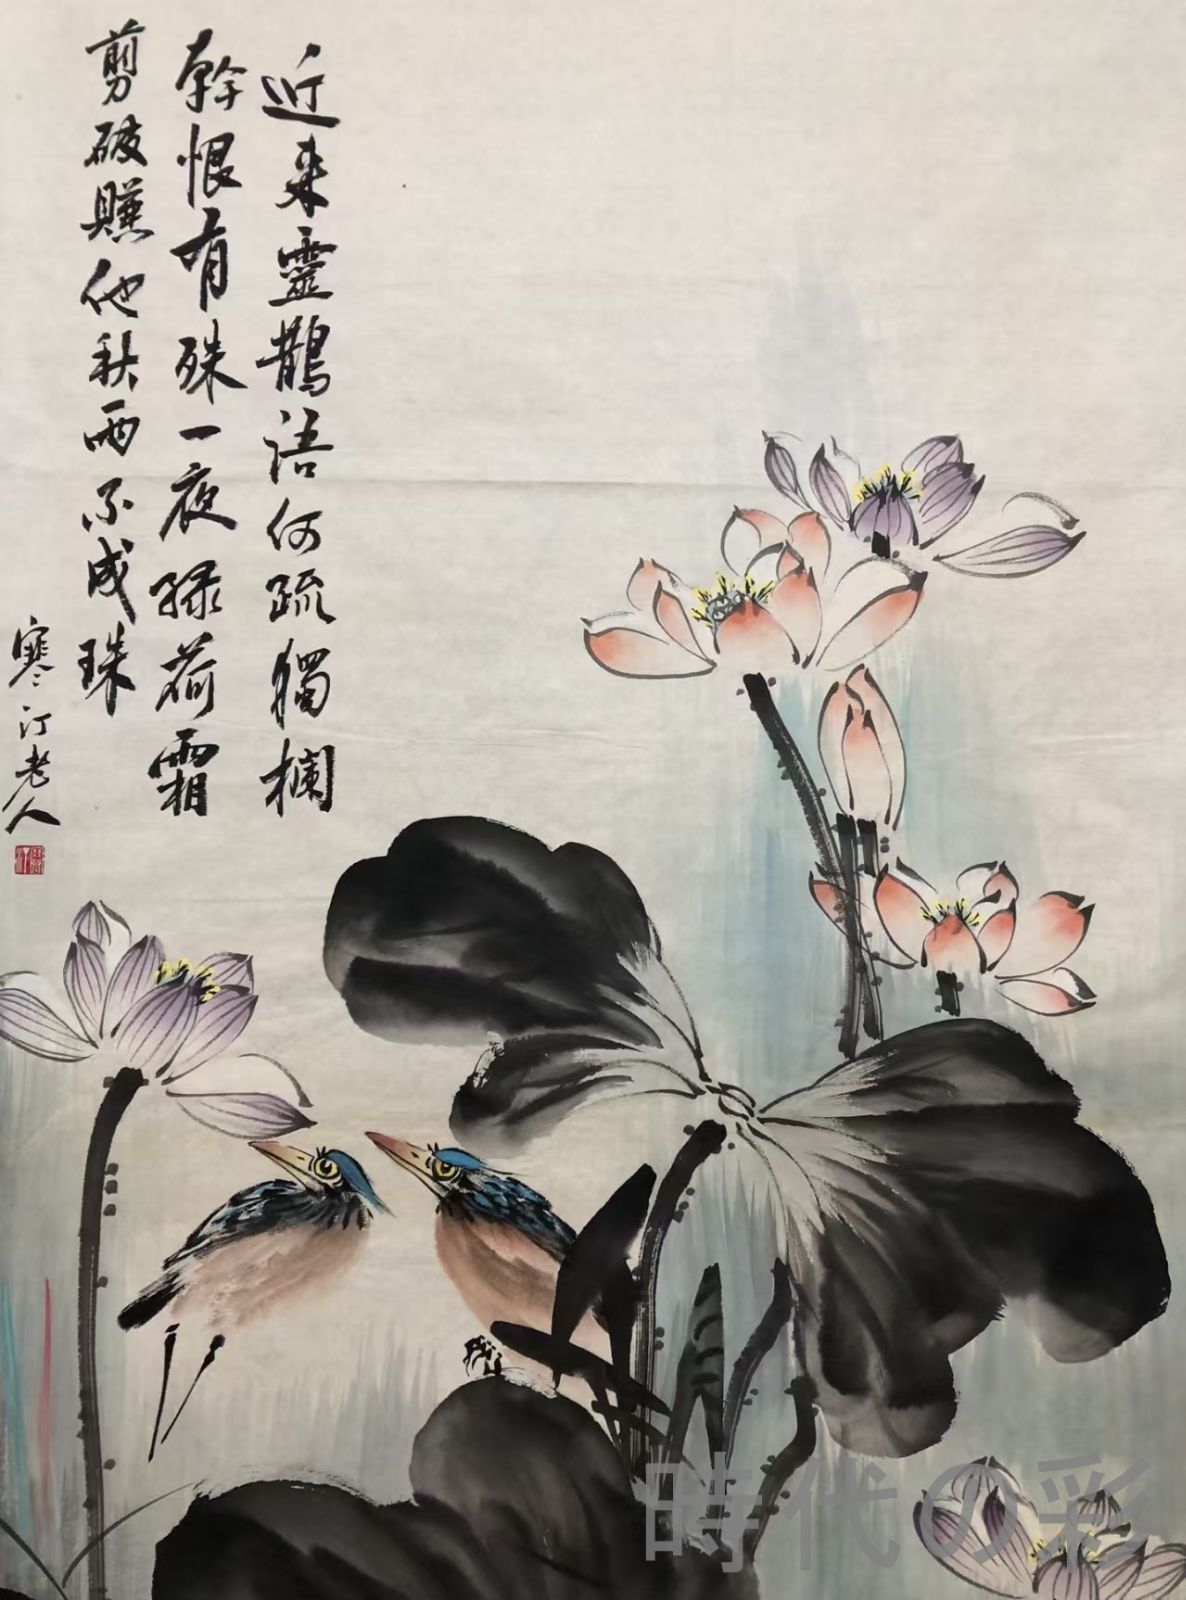 近来靈鵲語何疏獨欄
幹恨有殊一夜緑荷霜
剪破賺他秋雨不成珠
寒汀老人
時代の彩